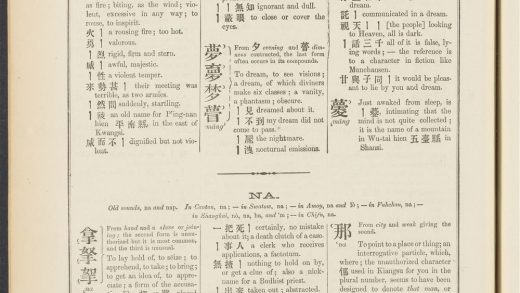 as fire; biting, as the wind; vio-
lent, excessive in any way; to
rouse, to inspirit.
火 | a rousing fire; too hot.
勇 | valorous.
| 烈 rigid, firm and stern.
威 | awful, majestic.
| 性 a violent temper.
來勢甚 | their meeting was
terrible, as two armies.
| 然間 suddenly, startling.
| 陵 an old name for P'ing-nan
hien 平南縣, in the east of
Kwangsi.
威而不 | dignified but not vio-
lent.
夢
夣
梦
瞢
mung
From 夕 evening and 瞢 dim-
ness contracted, the last form
often occurs in its compounds.
To dream, to see visions;
a dream, of which diviners
make six classes; a vanity,
a phantasm; obscure.
| 見 dreamed about it.
| 不到 my dream did not
come to pass.
| 魘 the nightmare.
| 洩 nocturnal emissions.
| 無知 ignorant and dull.
| 眼 to close or cover the
eyes.
託 | communicated in a dream.
視天 | | [the people] looking
to Heaven, all is dark.
| 話三千 all of it is false, ly-
ing words; — the reference is
to a character in fiction like
Munchausen.
甘與子同 | it would be pleas-
ant to lie by you and dream.
Just awaked from sleep, is
|, intimating that the
mind is not quite collected;
it is the name of a mountain
in Wu-tai hien 五臺縣 in
Shansi.
mung
NA.
Old sounds, na and nap. In Canton, na; — in Swatow, na; — in Amoy, na and; — in Fuhchau, na; —
in Shanghai, nò, na, ha, and 'm; — in Chifu, na.
拿
拏
挐
na
From hand and a slave or join-
ing; the second form is unau-
thorized but it is most common,
and the third is unusual.
To lay hold of, to seize; to
apprehend, to take; to bring;
to get an idea of, to appre-
ciate; a form of the accusa-
一把死 | certainly, no mistake
about it; a death clutch of a case.
| 事人 a clerk who receives
applications, a factotum.
無撈 | nothing to hold on by,
or get a clue of; also a nick-
name for a Budhist priest.
| 出來 taken out; abstracted.
那
no
From city and weak giving the
sound.
To point to a place or thing; an
interrogative particle, which,
where; the unauthorized character
used in Kiangsu for you in the
plural number, seems to have been
designed to denote that men, or